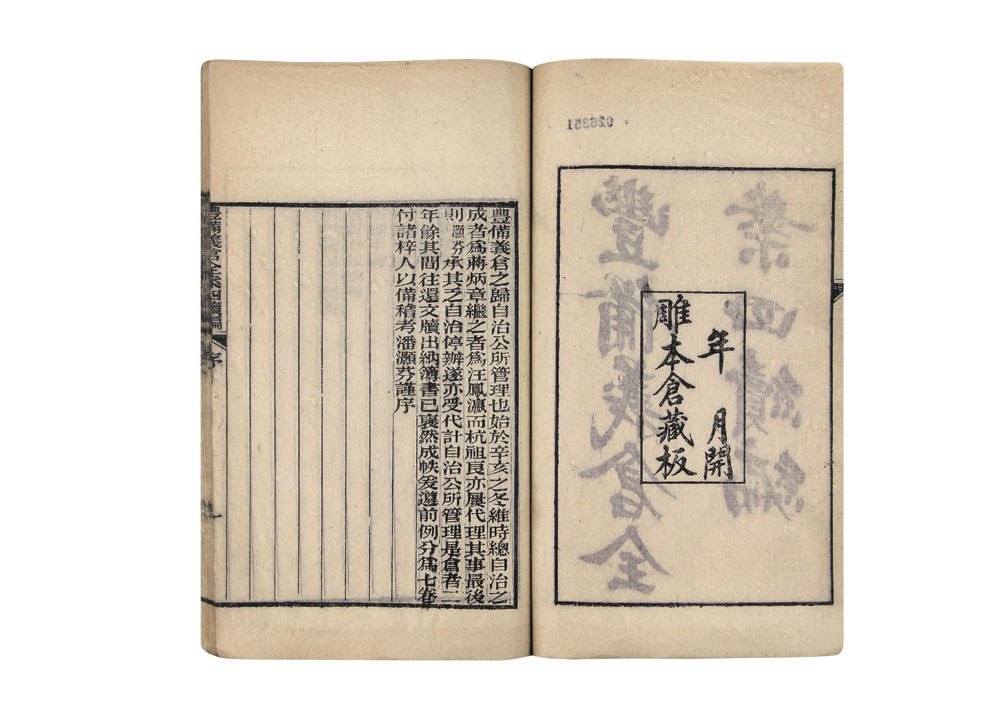 年　月開
雕本倉藏板
豐備義倉全
案四續編
豐備義倉之歸自治公所管理也始於辛亥之冬維時總自治之
成者爲蔣炳章繼之者爲汪鳳瀛而杭祖良亦屢代理其事最後
則灝芬承其乏自治停辦遂亦受代計自治公所管理是倉者二
年餘其間往還文牘出納簿書已裒然成帙爰遵前例分爲七卷
付諸梓人以備稽考潘灝芬謹序
豐備義倉全案四續編　序